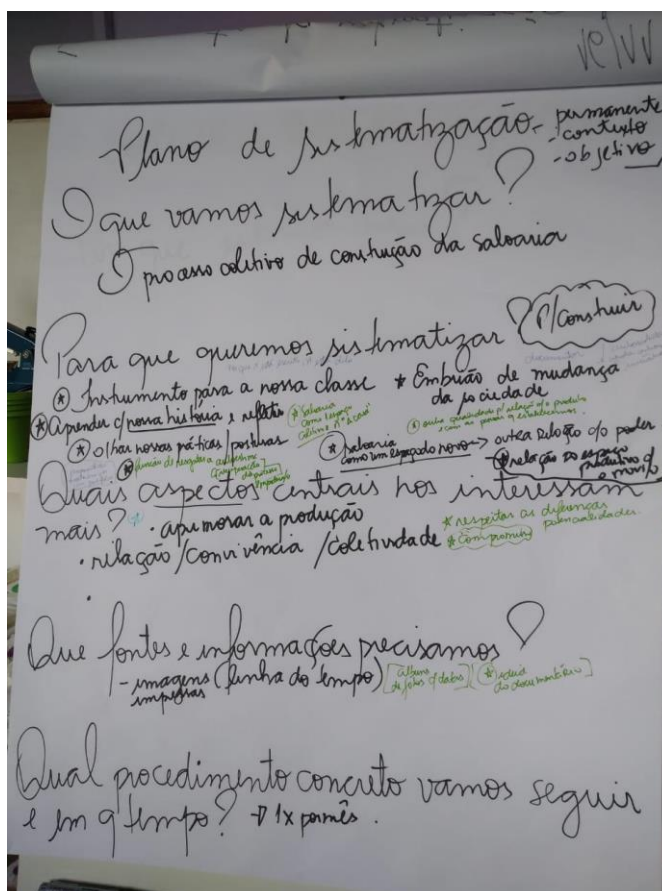 ve/vv
Plano de sistematização - permanente
- contexto
- objetivo
O que vamos sistematizar?
O processo coletivo de construção da saboaria
Para que queremos sistematizar? P/construir
* Instrumento para a nossa classe * Embrião de mudança da sociedade
* Aprender c/nossa história e refletir * Saboaria como
* olhar nossas práticas/posturas
* saboaria como um espaço do novo → outra relação c/o poder
* relação do espaço produtivo c/ o movi/o
Quais aspectos centrais nos interessam
mais? · aprimorar a produção
· relação/convivência/coletividade
* respeitar as diferenças
potencialidades
* compromisso
Que fontes e informações precisamos?
- imagens (linha do tempo) [álbum de fotos c/datas] [* ideia do documentário]
impressas
Qual procedimento concreto vamos seguir
e em q tempo? → 1x por mês.